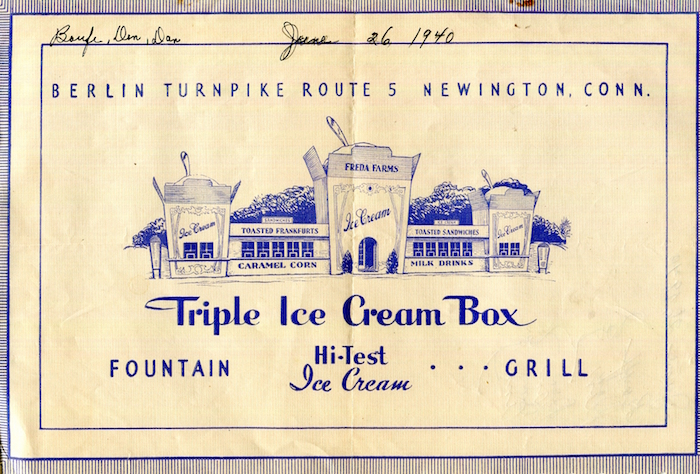 Don, Dan June 26 1940
BERLIN TURNPIKE ROUTE 5 NEWINGTON, CONN.
FREDA FARMS
Ice Cream
Ice Cream
Ice Cream
SANDWICHES
TOASTED FRANKFURTS
TOASTED SANDWICHES
CARAMEL CORN
MILK DRINKS
Triple Ice Cream Box
FOUNTAIN
Hi-Test
Ice Cream
. . . GRILL